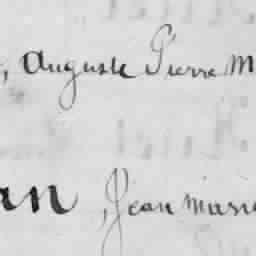 , Auguste Pierre M
an, Jean Marie